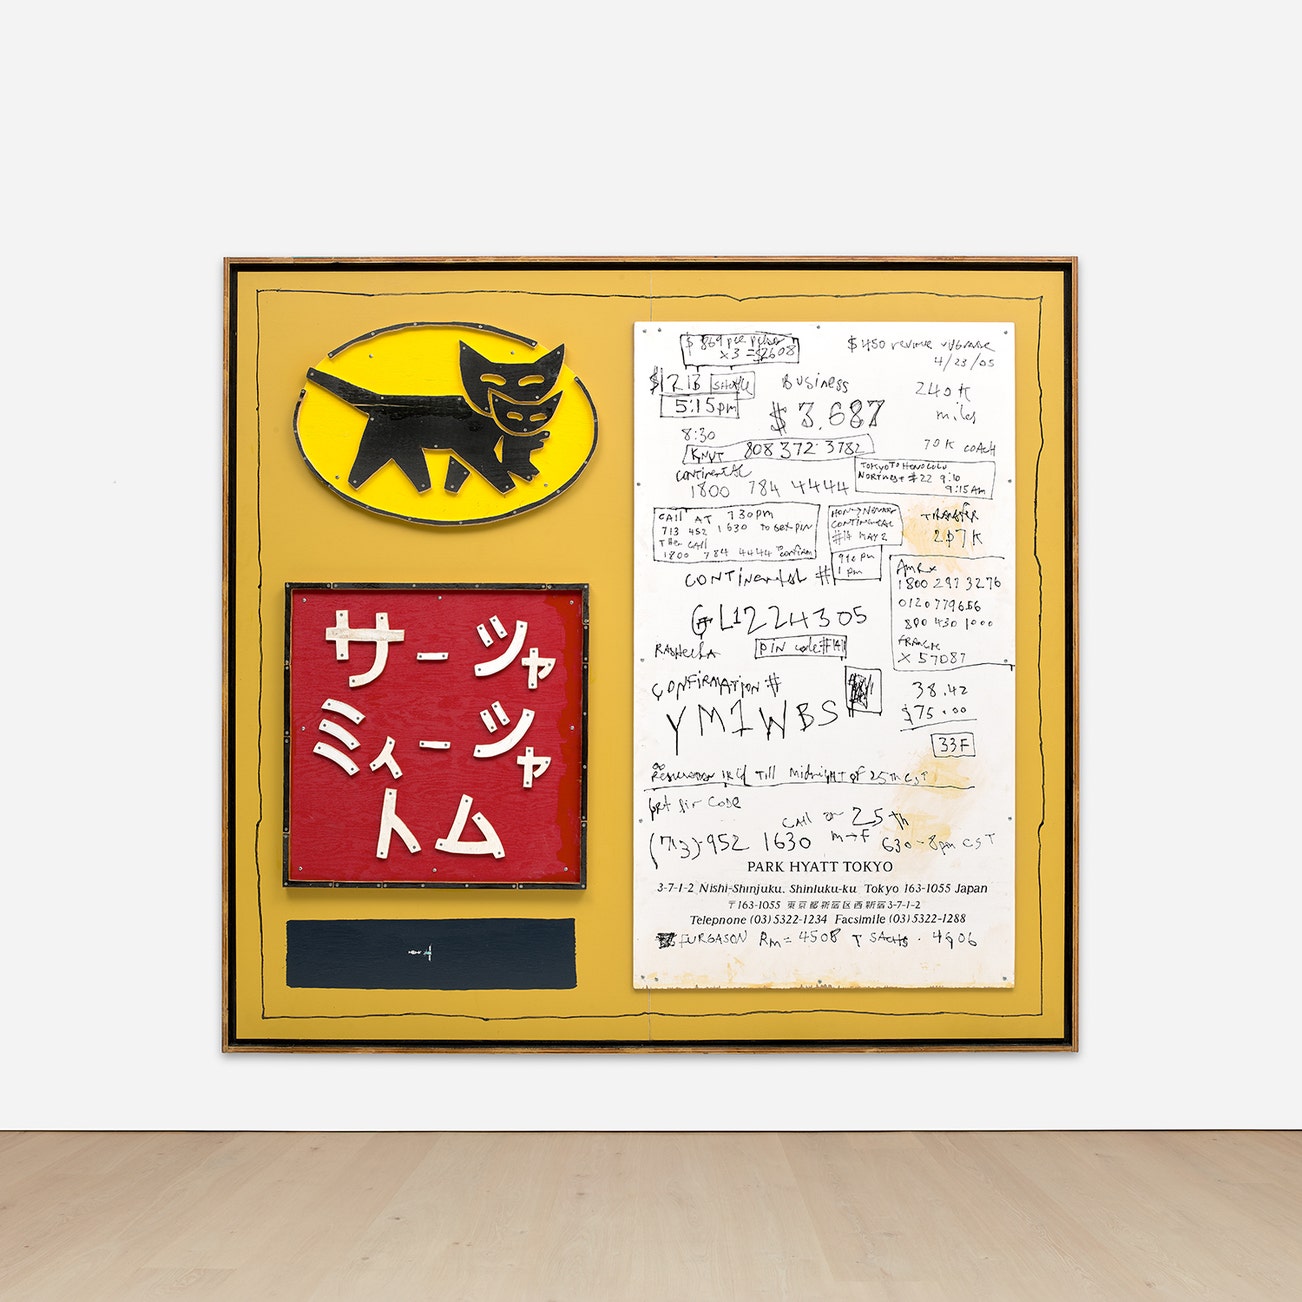 サーシャ
ミィーシャ
トム
$869 per person
x3 = $2608
$450 revenue upgrade
4/23/05
$1213
Business
240K
miles
5:15pm
$3,687
8:30
70K coach
KNUT 808 372 3782
CONTINENTAL
1800 784 4444
TOKYO TO HONOLULU
NORTHWEST #22 9:10
9:15 Am
CALL AT 730pm
713 952 1630 TO GET PIN
THEN CALL
1800 784 4444 TO confirm
CONTINENTAL
#14 MAY 2
1 pm
TRANSFER
207K
CONTINENTAL #
GL1224305
AmEx
1800 297 3276
0120779656
800 430 1000
X 57087
PIN code #
CONFIRMATION #
YM1WBS
38.42
$75.00
33F
RESERVATION is good TILL MIDNIGHT OF 25th CST
get pin code
CALL on 25th
(713) 952 1630 m→F 630-8pm CST
PARK HYATT TOKYO
3-7-1-2 Nishi-Shinjuku, Shinjuku-ku Tokyo 163-1055 Japan
〒163-1055 東京都新宿区西新宿3-7-1-2
Telephone (03) 5322-1234 Facsimile (03) 5322-1288
FURGASON Rm = 4508 T SACHS . 4906